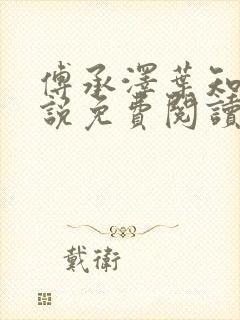 傅承澤葉知
說免費閱讀
戴衛